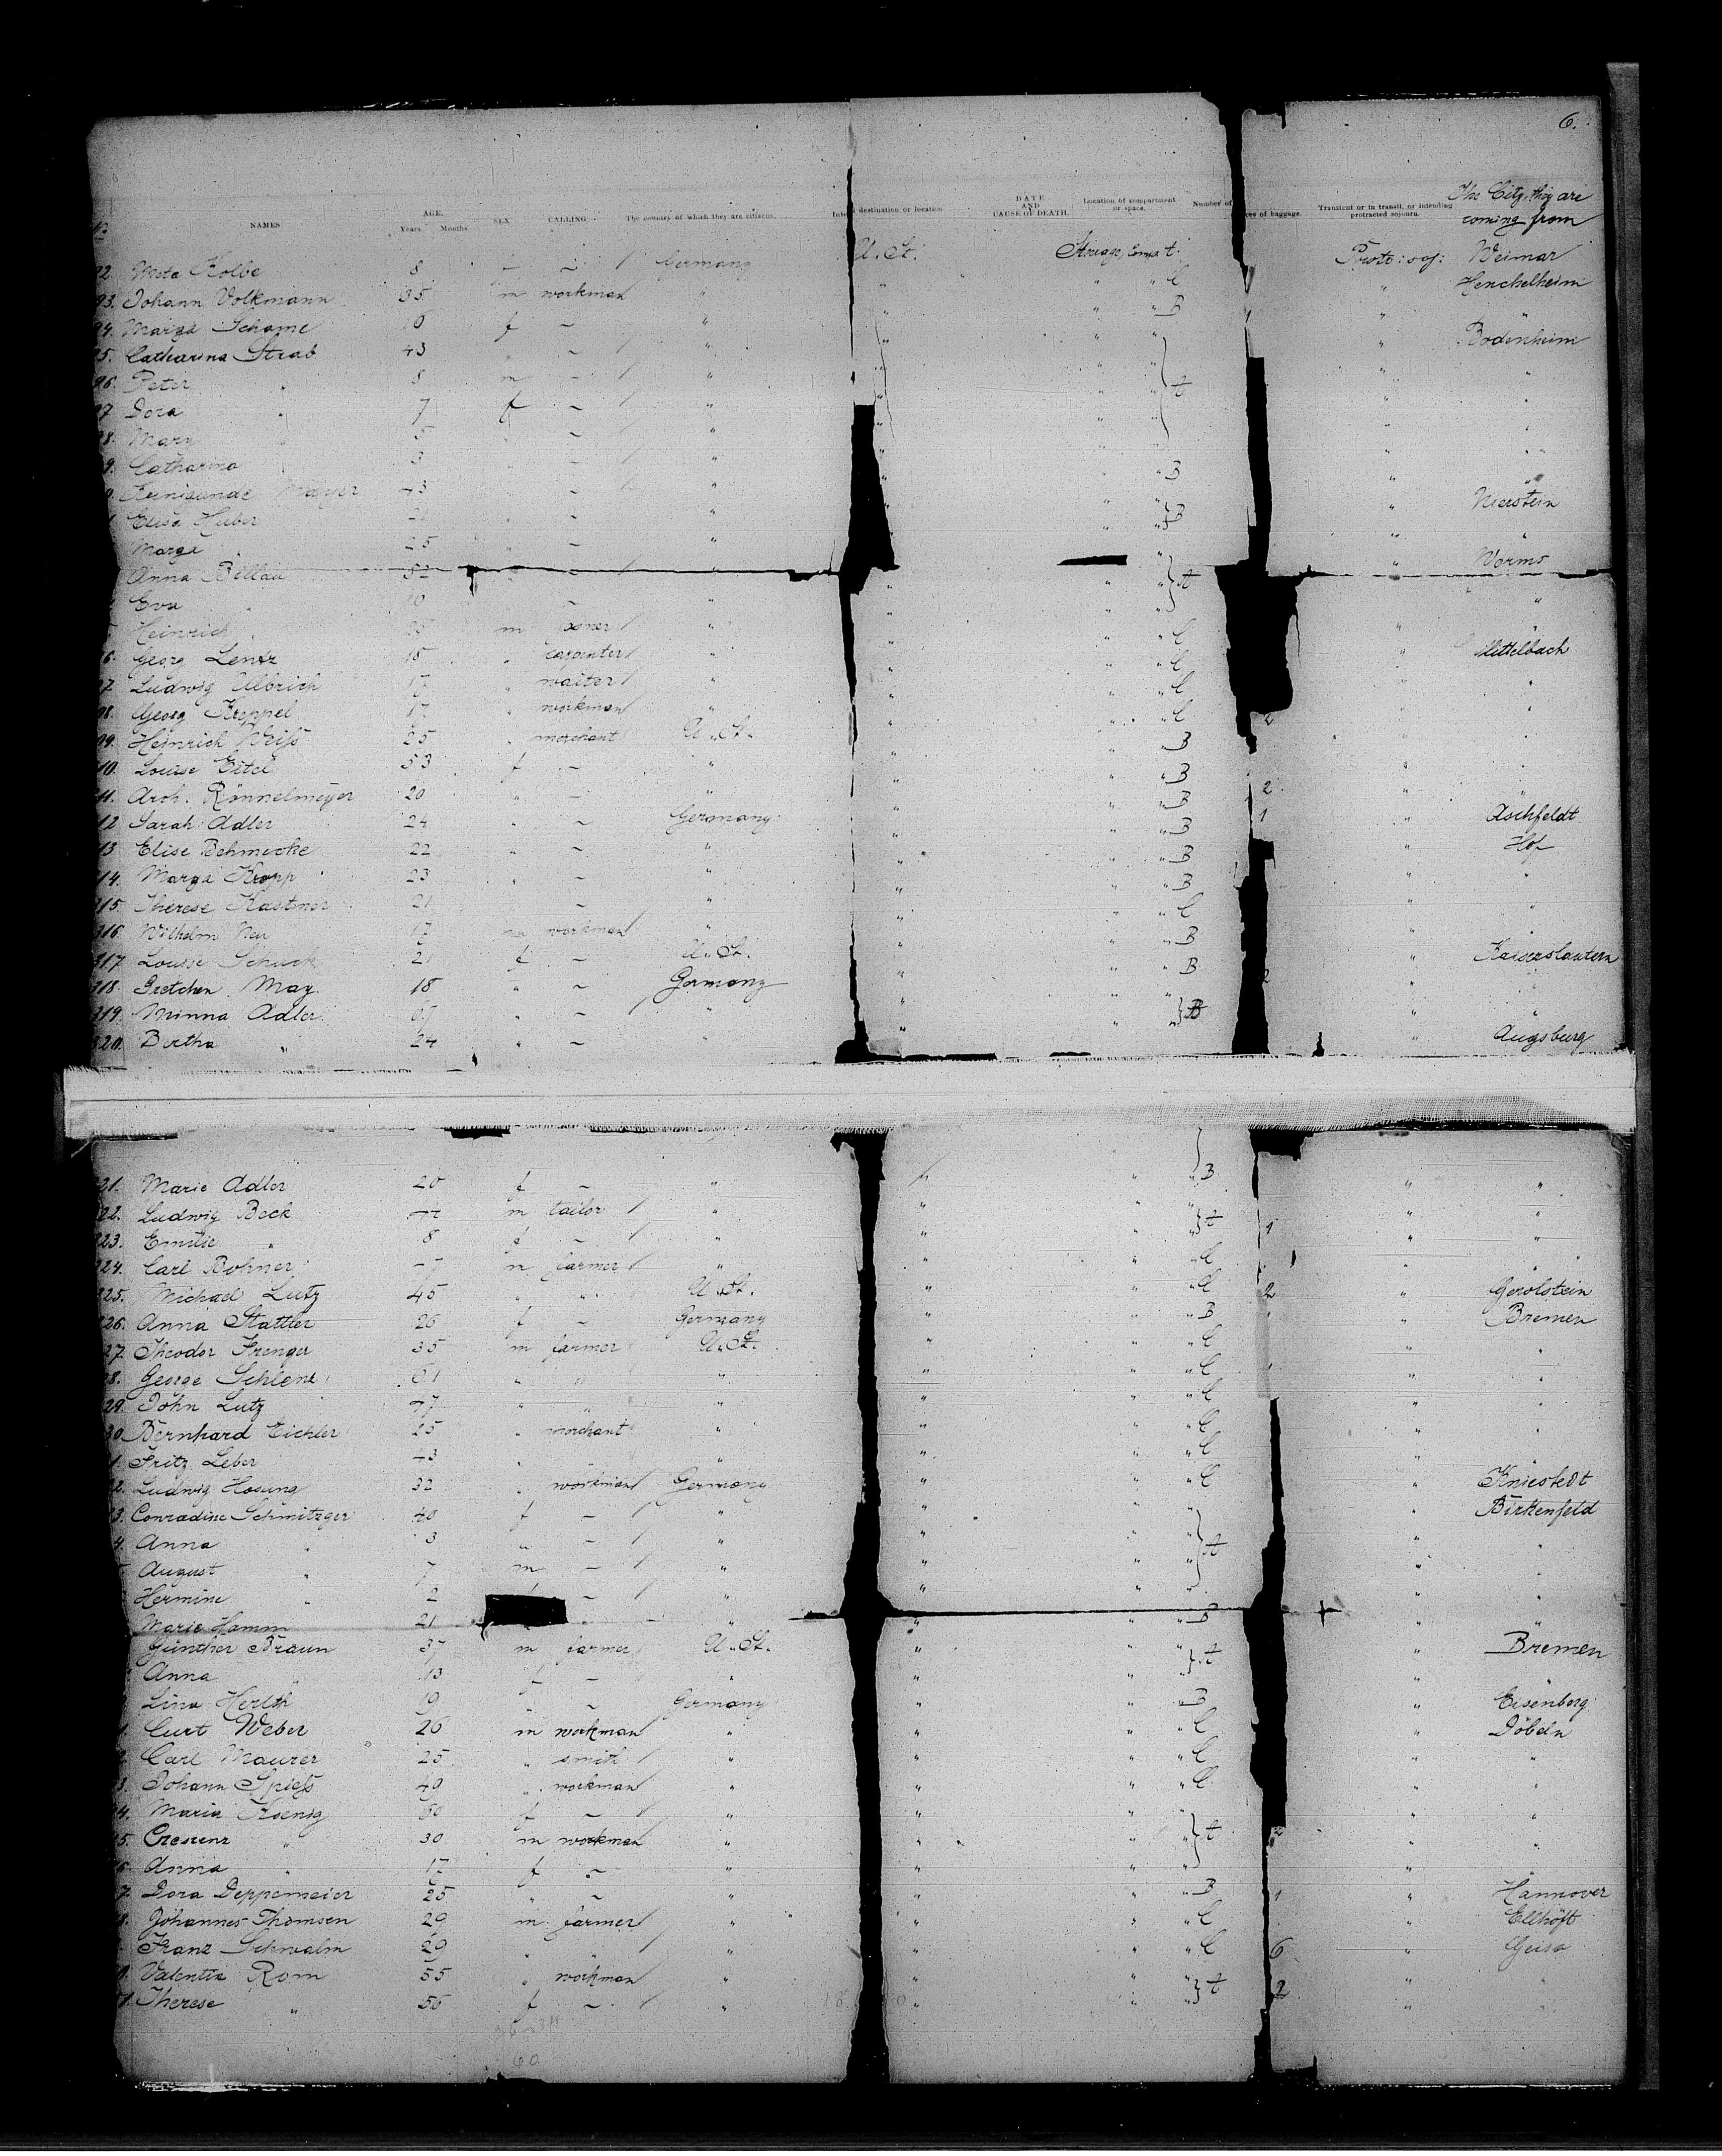 6.
The City they are
coming from
No NAMES AGE. Years Months SEX CALLING The country of which they are citizens. destination or location DATE AND CAUSE OF DEATH. Location of compartment or space. Number of of baggage. Transient or in transit, or intending protracted sojourn.
92 Meta Kolbe 8 f - / Germany U. St. t. Weimar
93. Johann Volkmann 35 m workman " " " " C " Henchelheim
94. Marga Schame 10 f - " " " " B " "
95. Catharina Strab 43 " - / " " " " " Bodenheim
96. Peter " 8 m - / " " " " t " "
97 Dora " 7 f - / " " " " " "
98. Mary 5 " - / " " " " " "
99. Catharina 3 - / " " " " " "
Kunigunde Mayer 43 - / " " " B " "
Elisa Huber 21 " - " " " " B " Nierstein
Marga " 25 " - " " " " "
Anna Billau 52 " - / " " " t " Worms
Eva " 10 - " " " " "
Heinrich " m / " " " " "
6. Georg Lentz 18 " carpenter / " " " C " Mittelbach
7. Ludwig Ulbrich 17 " waiter / " " " C " "
08. Georg Kroppel 17 " workman " " " C 2 " "
09. Heinrich Weiss 25 " merchant U. St. " " C " "
10. Louise Eitel 53 f - " " " B " "
11. Arch. Rönnelmeyer 20 " - " " " B 2 " "
12 Sarah Adler 24 " - Germany " " B 1 " Aschfeldt
13 Elise Behmecke 22 " - " " " B " Hof
14. Marga Kropp 23 " - " " " B " "
315. Therese Kastner 21 - " " " B " "
316. Wilhelm Neu 17 m workman / " " " C " "
317 Louise Schuck 21 f - U. St. " " B " Kaiserslautern
318. Gretchen May 18 " - Germany " " B 2 " "
319. Minna Adler 67 " - / " " " B " "
320. Bertha " 24 " - " " " " Augsburg
21. Marie Adler 20 f - " " " B " "
22. Ludwig Beck m tailor / " " " t 1 " "
323. Emilie " 8 f - / " " " " "
324. Carl Bohner m farmer / " " " C "
325. Michael Lutz 45 " " U. St. " " C 2 " Gerolstein
326. Anna Stattler 26 f - Germany " " B " " Bremen
27. Theodor Frenger 35 m farmer U. St. " " C " "
28. George Schlene 61 " " " " " C " "
29. John Lutz 47 " " " " " C " "
30 Bernhard Eichler 25 " merchant " " " C " "
1. Fritz Leber 43 " " " " C
2. Ludwig Hosung 32 " workman / Germany " " C " Kniestedt
3. Conradine Schmitzger 40 f - / " " " " Birkenfeld
4. Anna " 3 " - / " " " t " "
August " 7 m - / " " " " "
Hermine " 2 - / " " " " "
Marie Hamm 21 " - " " " B " "
Günther Braun 37 m farmer U. St. " " t " Bremen
Anna " 13 f - " " " " "
Lina Herlth 19 " - Germany " " B " Eisenberg
1. Curt Weber 26 m workman / " " " C " Döbeln
Carl Maurer 25 " smith / " " " C " "
3. Johann Spiess 49 " workman " " " C " "
4. Maria Koenig 60 f - / " " " " "
5. Crescenz " 30 m workman " " " t 2 " "
6. Anna " 17 f - " " " " "
7. Dora Deppemeier 25 " - " " " B 1 " Hannover
8. Johannes Thomsen 29 m farmer / " " " C " Ellhöft
Franz Schwalm 29 " " / " " " C 6 " Geisa
Valentin Rom 55 " workman " " " t 2 " "
1. Therese " 56 f - / " " " " "
60